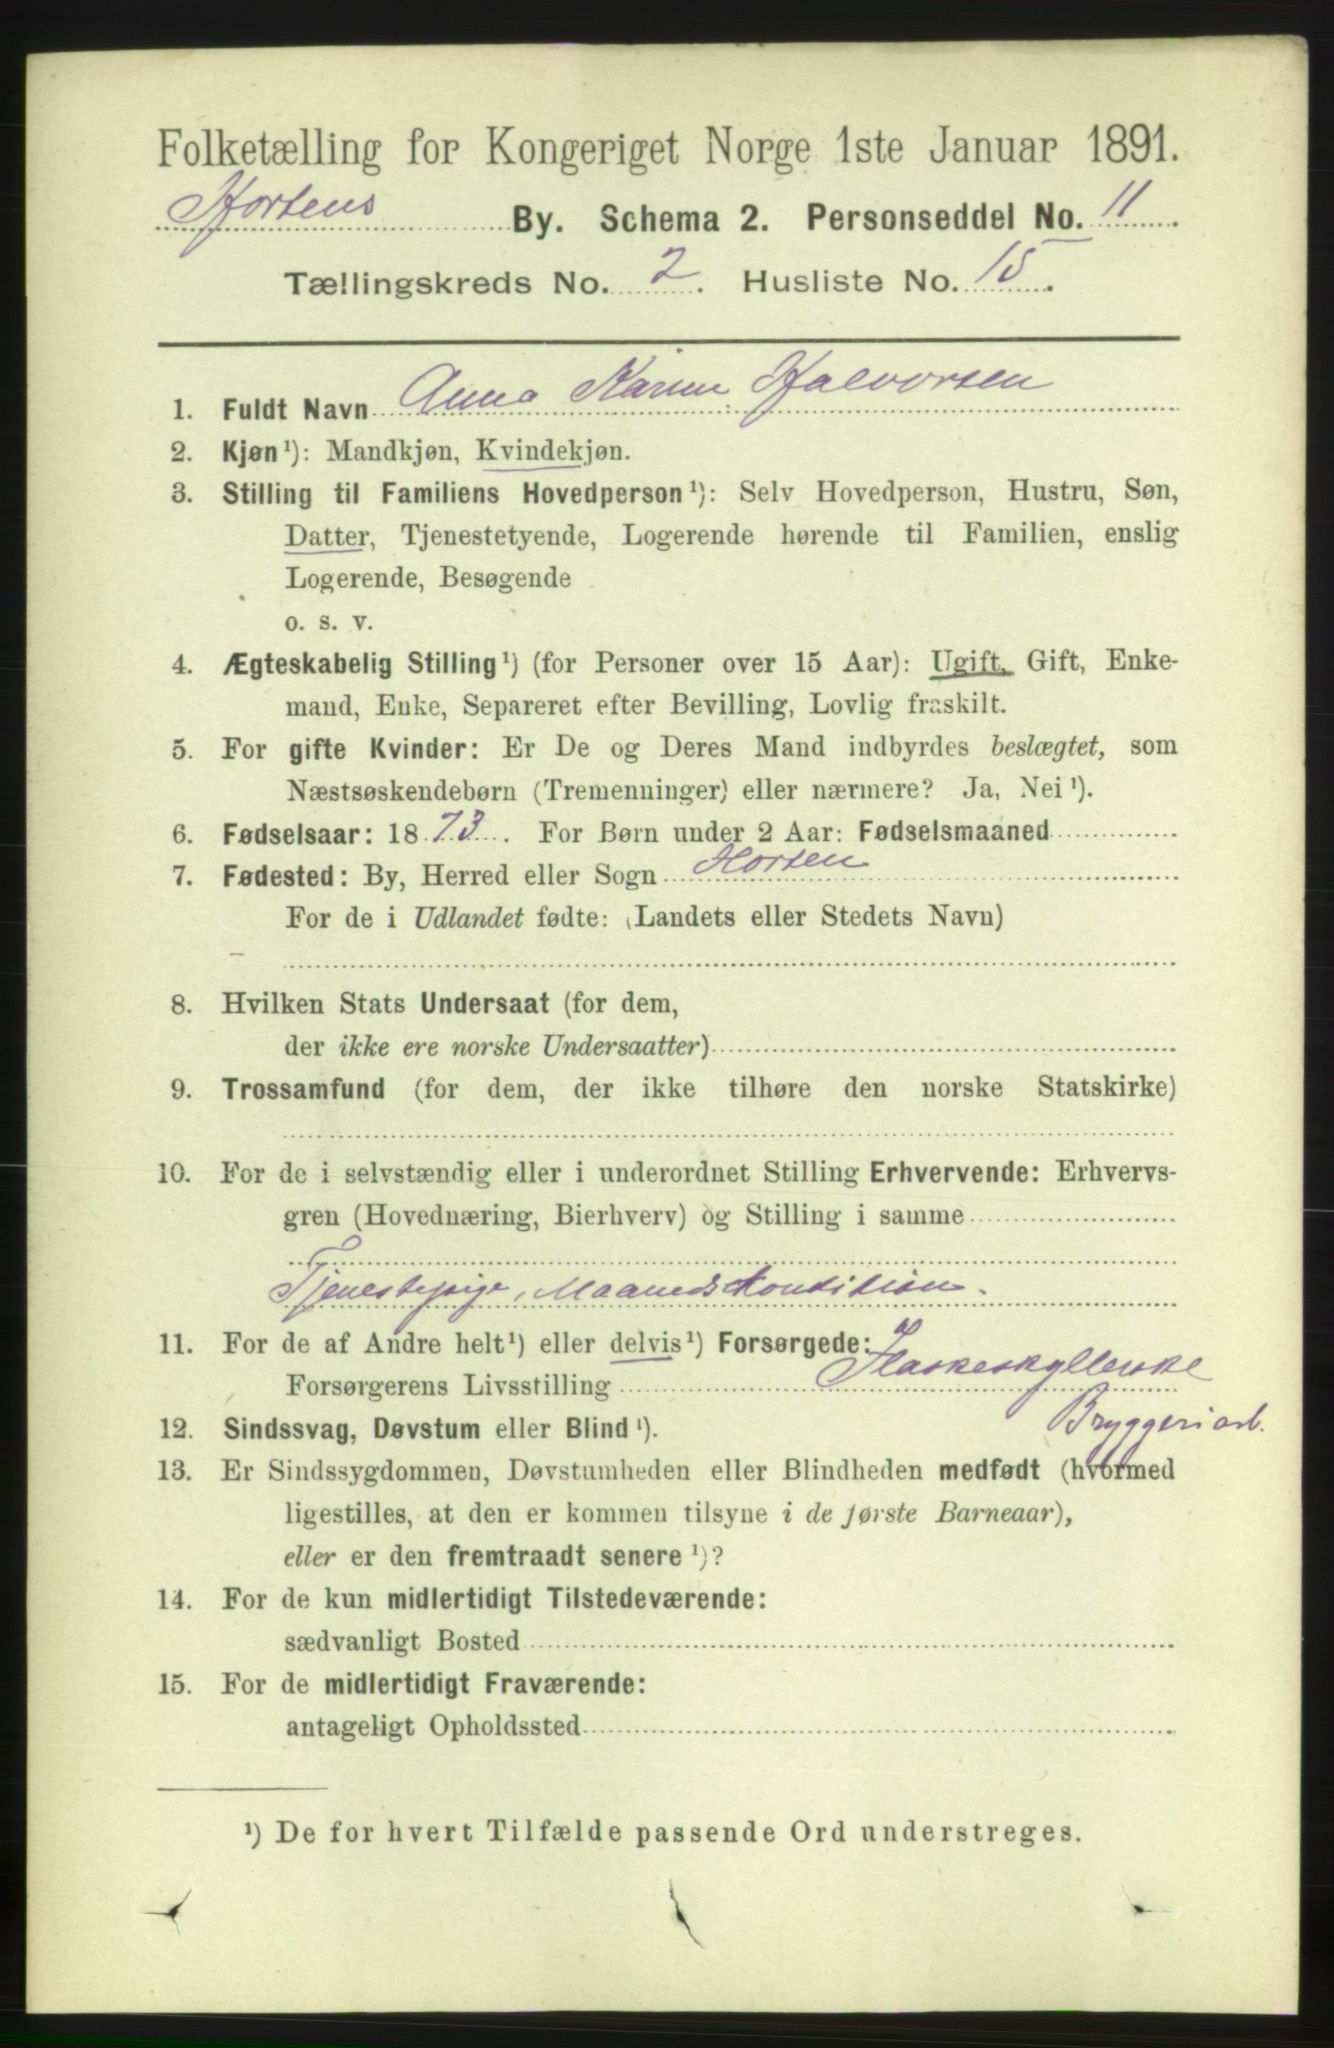 Folketælling for Kongeriget Norge 1ste Januar 1891.
Hortens By. Schema 2. Personseddel No. 11
Tællingskreds No. 2. Husliste No. 15.
1. Fuldt Navn Anna Karine Halvorsen
2. Kjøn ¹): Mandkjøn, Kvindekjøn.
3. Stilling til Familiens Hovedperson ¹): Selv Hovedperson, Hustru, Søn,
Datter, Tjenestetyende, Logerende hørende til Familien, enslig
Logerende, Besøgende
o. s. v.
4. Ægteskabelig Stilling ¹) (for Personer over 15 Aar): Ugift, Gift, Enke-
mand, Enke, Separeret efter Bevilling, Lovlig fraskilt.
5. For gifte Kvinder: Er De og Deres Mand indbyrdes beslægtet, som
Næstsøskendebørn (Tremenninger) eller nærmere? Ja, Nei ¹).
6. Fødselsaar: 1873. For Børn under 2 Aar: Fødselsmaaned
7. Fødested: By, Herred eller Sogn Horten
For de i Udlandet fødte: (Landets eller Stedets Navn)
8. Hvilken Stats Undersaat (for dem,
der ikke ere norske Undersaatter)
9. Trossamfund (for dem, der ikke tilhøre den norske Statskirke)
10. For de i selvstændig eller i underordnet Stilling Erhvervende: Erhvervs-
gren (Hovednæring, Bierhverv) og Stilling i samme
Tjenestepige, Maanedskondition.
11. For de af Andre helt ¹) eller delvis ¹) Forsørgede:
Forsørgerens Livsstilling Flaskeskyllerske
Bryggeriarb.
12. Sindssvag, Døvstum eller Blind ¹).
13. Er Sindssygdommen, Døvstumheden eller Blindheden medfødt (hvormed
ligestilles, at den er kommen tilsyne i de første Barneaar),
eller er den fremtraadt senere ¹)?
14. For de kun midlertidigt Tilstedeværende:
sædvanligt Bosted
15. For de midlertidigt Fraværende:
antageligt Opholdssted
¹) De for hvert Tilfælde passende Ord understreges.